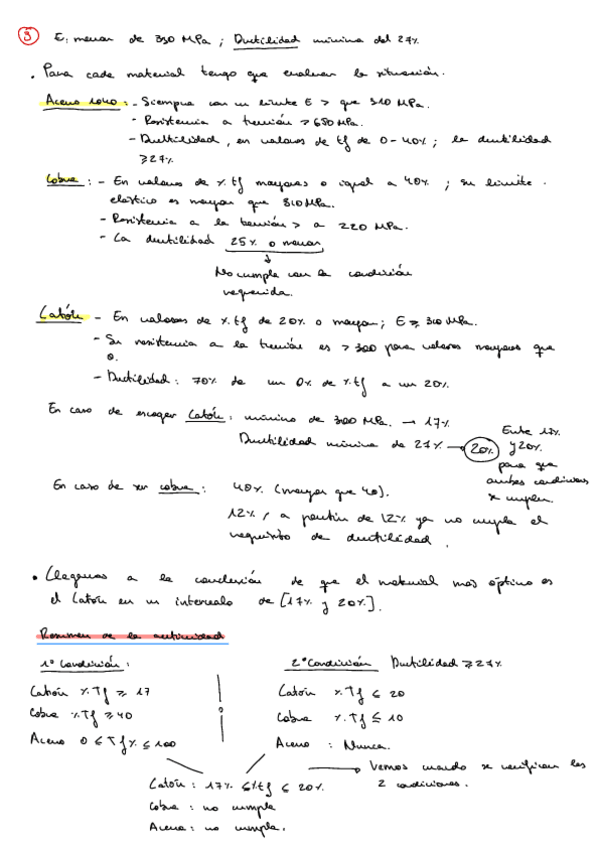 3 E. menor de 350 MPa ; Ductilidad mínima del 27%
• Para cada material tengo que evaluar la situación.
Acero 1040 : - Siempre con un límite E > que 310 MPa.
- Resistencia a tensión > 650 MPa.
- Ductilidad, en valores de tf de 0 - 40% ; la ductilidad
≥ 27%
Cobre : - En valores de % tf mayores o igual a 40% ; su límite
elástico es mayor que 310 MPa.
- Resistencia a la tensión > a 220 MPa.
- La ductilidad 25% o menor
↓
No cumple con la condición
requerida.
Latón - En valores de %tf de 20% o mayor; E ≥ 310 MPa.
- Su resistencia a la tensión es > 300 para valores mayores que
0.
- Ductilidad : 70% de un 0% de %tf a un 20%.
En caso de escoger Latón : mínimo de 300 MPa. → 17%
Ductilidad mínima de 27% → 20%
Entre 17%
y 20%
para que
ambas condiciones
se cumplen.
En caso de ser cobre : 40% (mayor que 40).
12%, a partir de 12% ya no cumple el
requisito de ductilidad.
• Llegamos a la conclusión de que el material mas óptimo es
el latón en un intervalo de [17% y 20%].
Resumen de la actividad
1º Condición :
Latón %Tf ≥ 17
Cobre %Tf ≥ 40
Acero 0 ≤ Tf% ≤ 100
2º Condición Ductilidad ≥ 27%
Latón %Tf ≤ 20
Cobre %Tf ≤ 10
Acero : Nunca.
Latón : 17% ≤ %tf ≤ 20% → Vemos cuando se verifican las
2 condiciones.
Cobre : no cumple
Acero : no cumple.